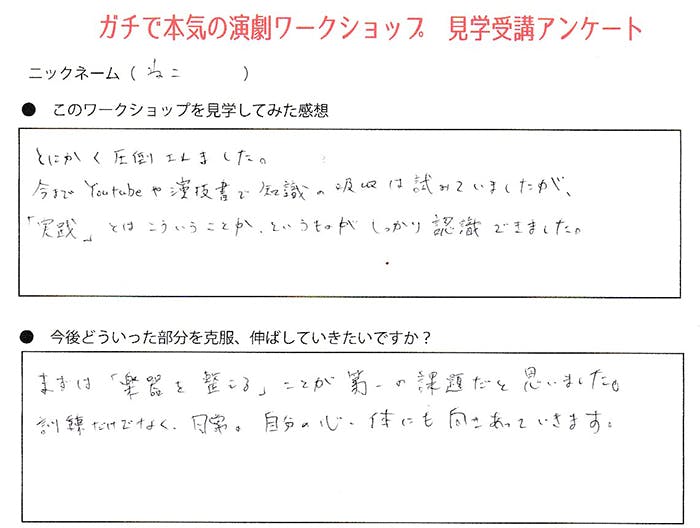 ガチで本気の演劇ワークショップ 見学受講アンケート
ニックネーム(ねこ)
● このワークショップを見学してみた感想
とにかく圧倒されました。
今までYoutubeや演技書で知識の吸収は試みていましたが、
「実践」とはこういうことか、というものがしっかり認識できました。
● 今後どういった部分を克服、伸ばしていきたいですか？
まずは「楽器を整える」ことが第一の課題だと思いました。
訓練だけでなく、日常。自分の心・体にも向きあっていきます。